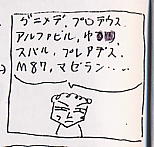 ガニメデ、プロテウス、
アルファビル、ゆ
スバル、プレアデス、
M87、マゼラン‥‥